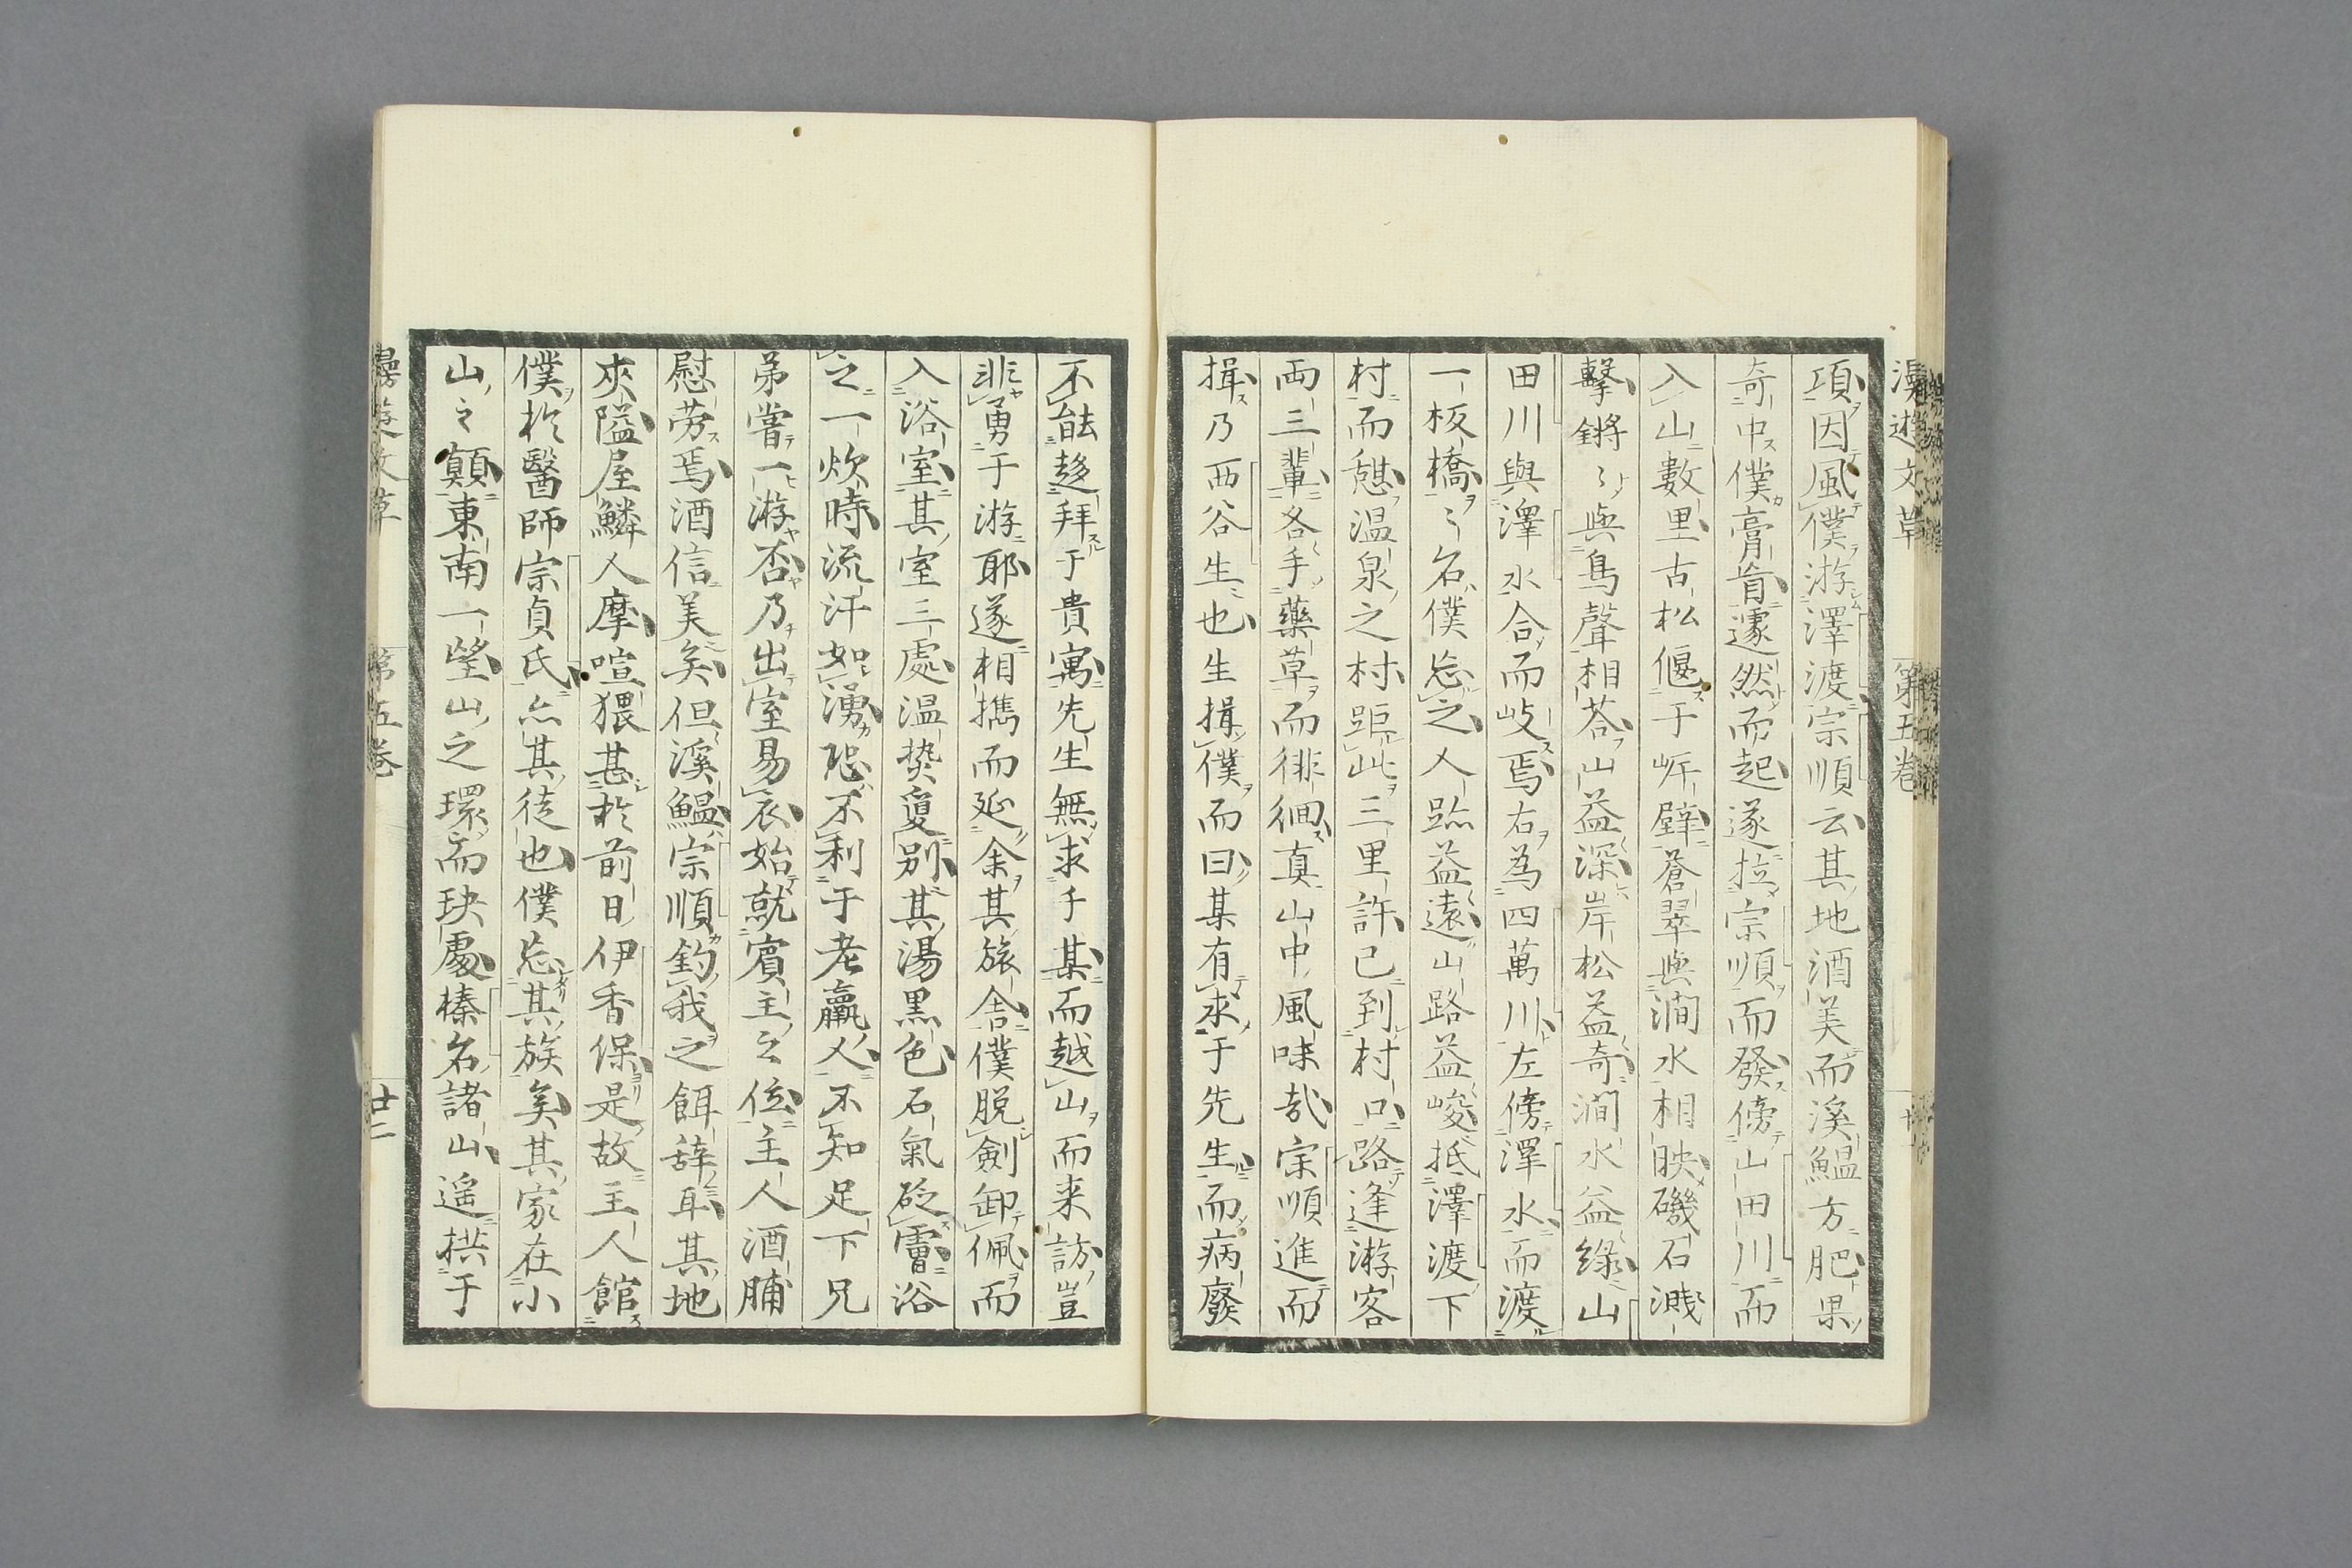 漫遊文草 第五卷
項因風僕游澤渡宗順云其地酒美而溪鰛方肥果
奇中僕膏肓遽然而起遂拉宗順而發傍山田川而
入山數里古松偃于岍壁蒼翠與澗水相映磯石濺
擊鏘〻與鳥聲相荅山益深岸松益奇澗水益綠山
田川與澤水合而岐焉右為四萬川左傍澤水而渡
一板橋〻名僕忘之入跡益遠山路益峻抵澤渡下
村而憩温泉之村距此三里許已到村口路逢游客
両三輩各手藥草而徘徊真山中風味哉宗順進而
揖乃西谷生也生揖僕而曰某有求于先生而病癈
不能趍拜于貴寓先生無求于某而越山而来訪豈
非勇于游耶遂相擕而延余其旅舎僕脱劍卸佩而
入浴室其室三處温𤍠夐別其湯黒色石氣砭膚浴
之一炊時流汗如湧恐不利于老羸人不知足下兄
弟嘗一游否乃出室易衣始就賓主之位主人酒脯
慰劳焉酒信美矣但溪鰛宗順釣我之餌辞耳其地
夾隘屋鱗人摩喧猥甚於前日伊香保是故主人館
僕於醫師宗貞氏亦其徒也僕忘其族矣其家在小
山之顛東南一望山之環而玦處榛名諸山遥拱于
漫遊文草 第五卷 廿二